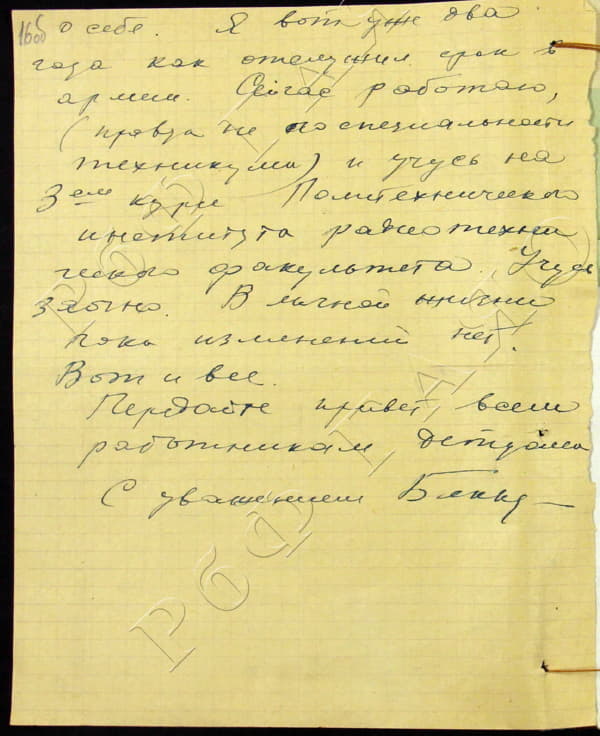 160б
о себе. Я вот уже два
года как отслужил срок в
армии. Сейчас работаю,
(правда не по специальности
техникума) и учусь на
3ем курсе Политехнического
института радиотехни
ческого факультета. Учусь
заочно. В личной жизни
пока изменений нет.
Вот и все.
Передайте привет всем
работникам Детдома
С уважением